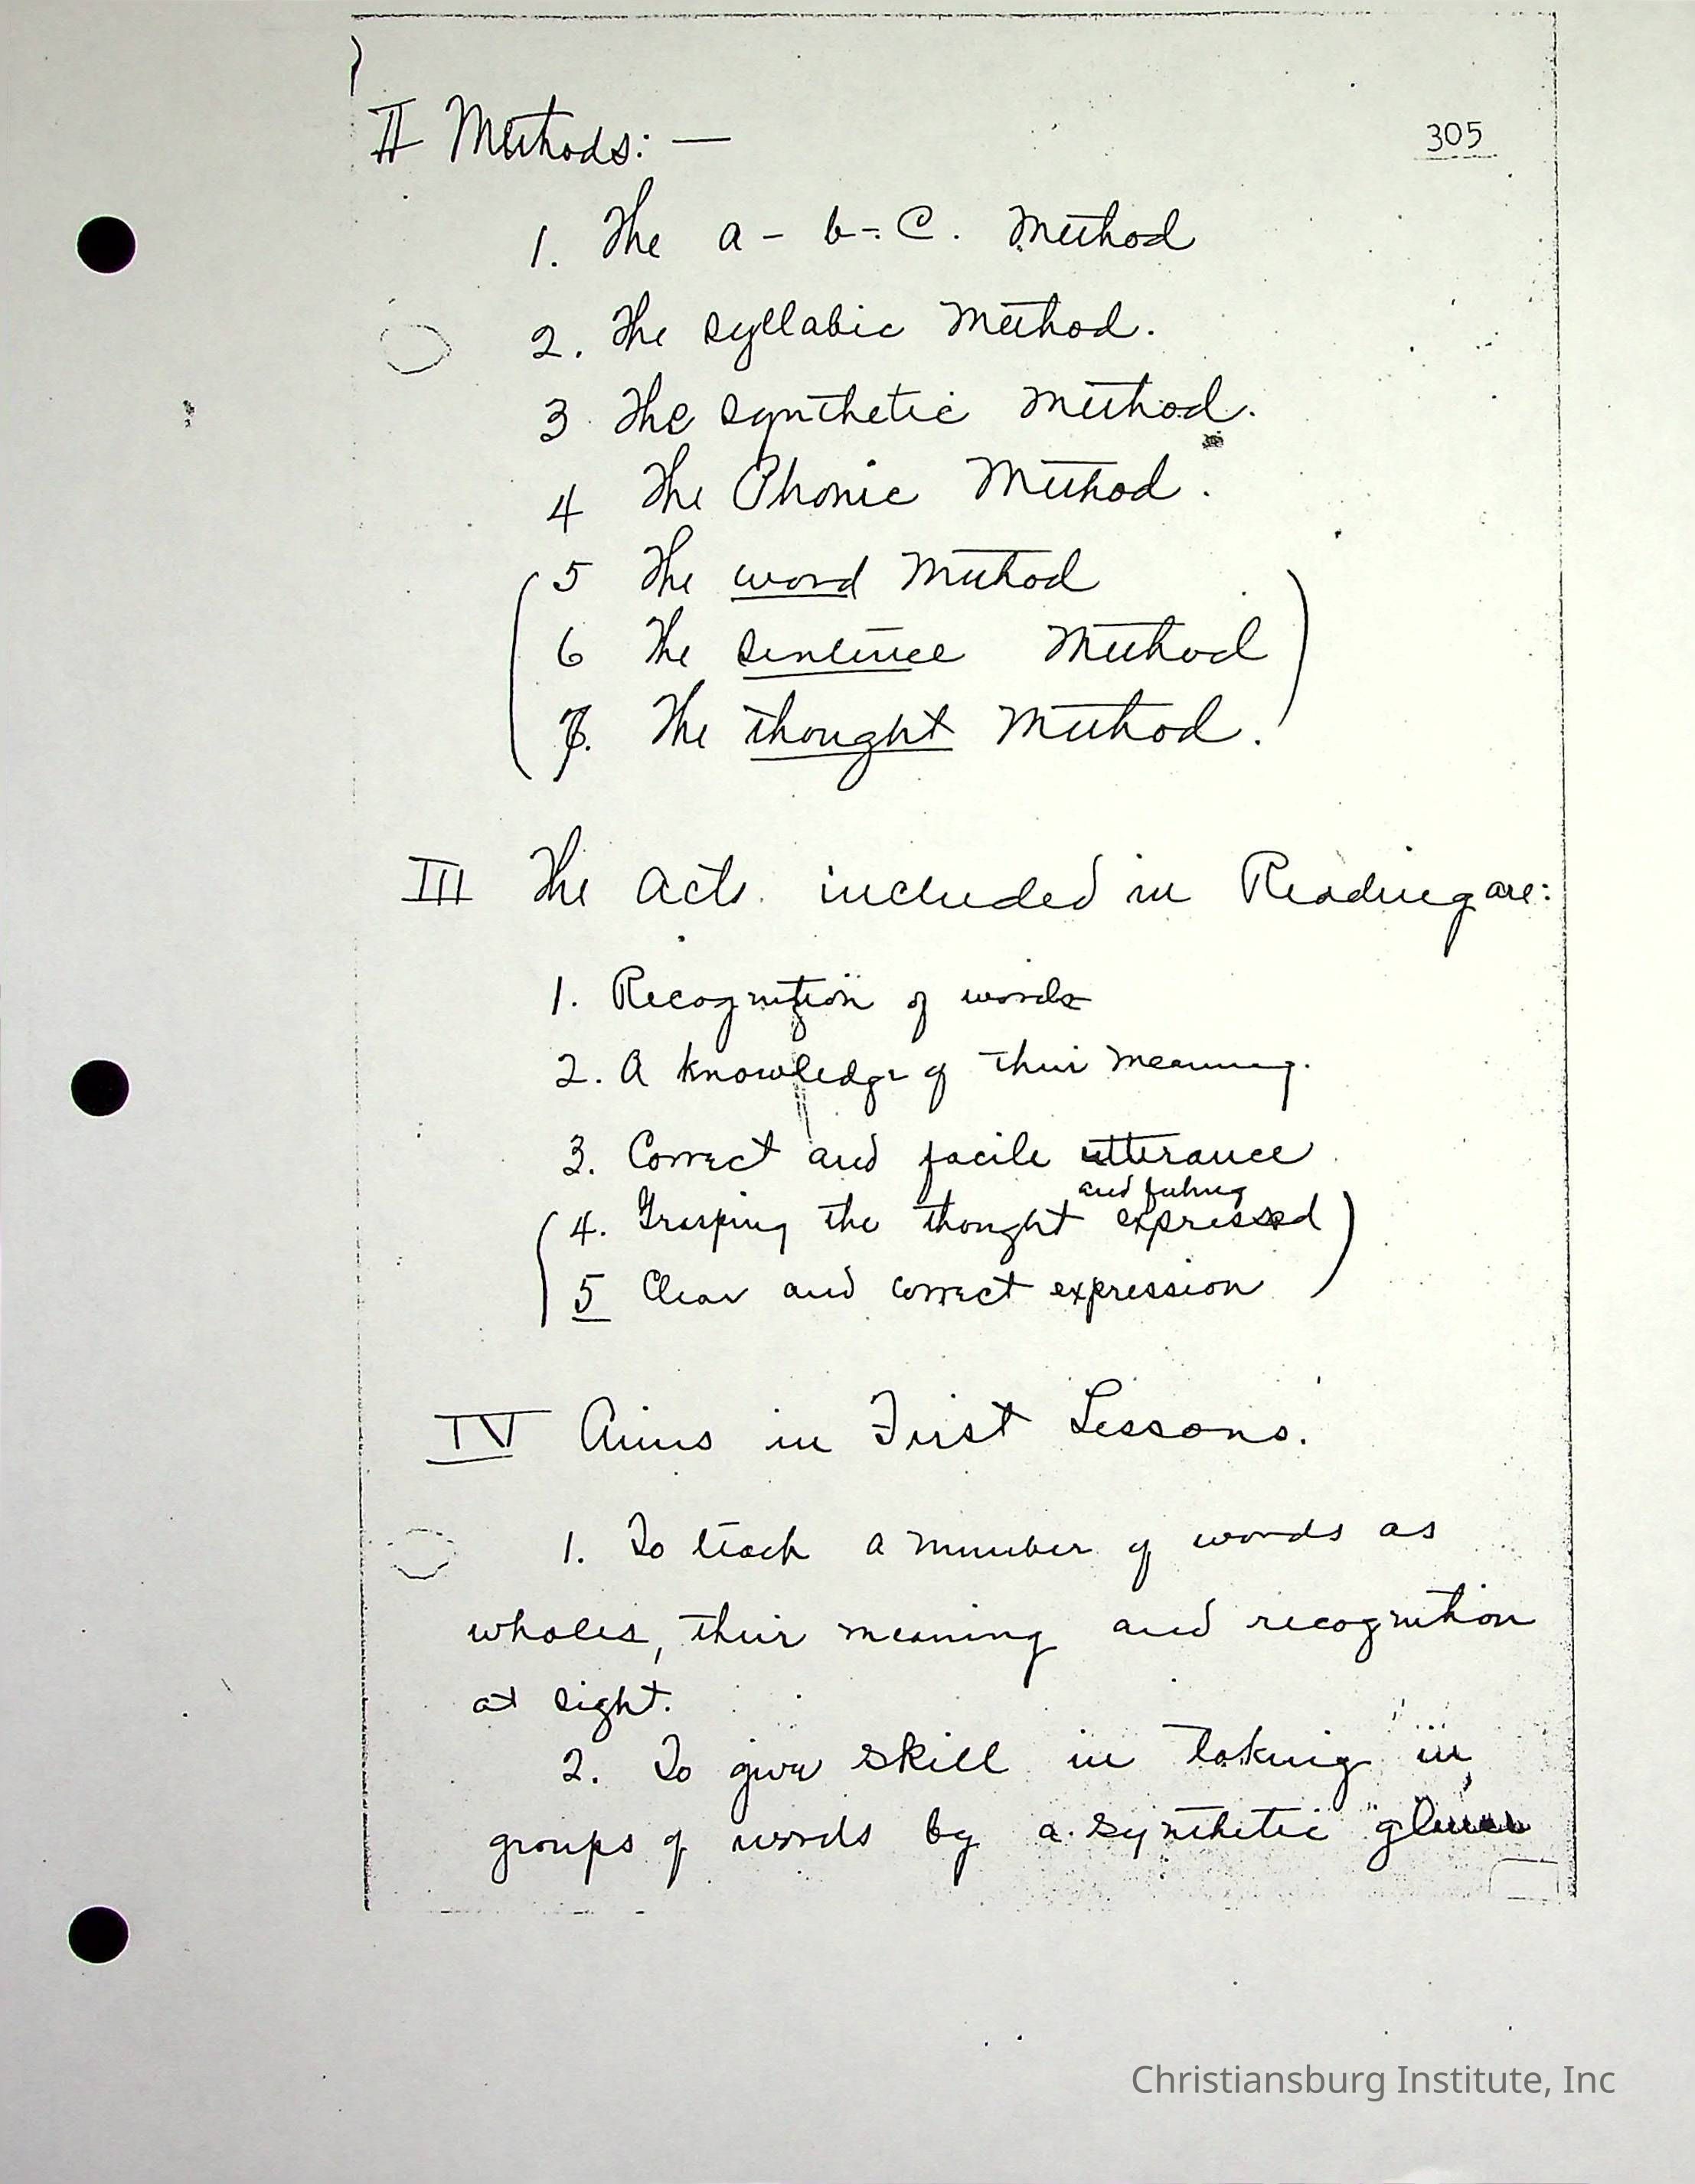 305
II Methods: —
1. The a - b - C. Method
2. The syllabic Method.
3. The synthetic Method.
4 The Phonic Method.
(5 The word Method
6 The sentence Method)
7. The thought Method.
III The Acts included in Reading are:
1. Recognition of words
2. A knowledge of their meaning.
3. Correct and facile utterance
and feeling
(4. Grasping the thought expressed)
5 Clear and correct expression
IV Aims in First Lessons.
1. To teach a number of words as
wholes, their meaning and recognition
at sight.
2. To give skill in taking in
groups of words by a synthetic "glance
Christiansburg Institute, Inc